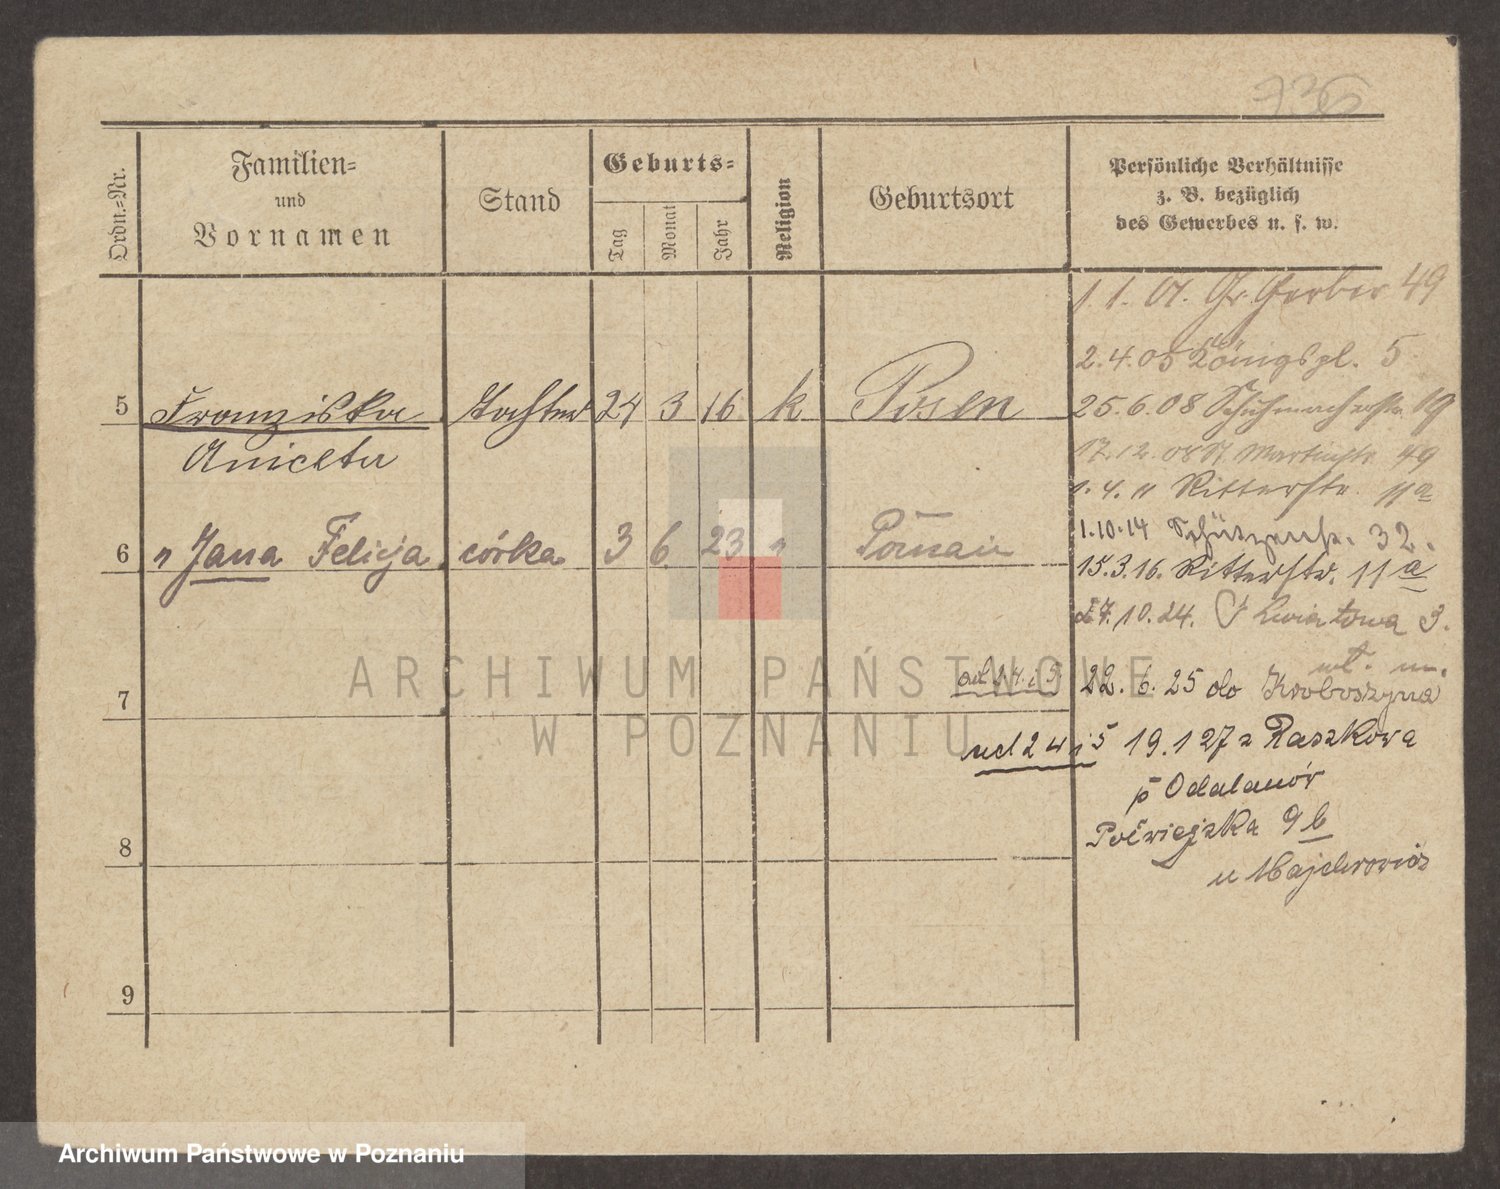 736
Ordn.=Nr.
Familien=
und
Vornamen
Stand
Geburts=
Tag
Monat
Jahr
Religion
Geburtsort
Persönliche Verhältnisse
z. B. bezüglich
des Gewerbes u. s. w.
1.1.01. Gr. Gerber 49
2.4.05 Königspl. 5
5 Franziska Tochter 24 3 16 k Posen
25.6.08 Schuhmacherstr. 19
Aniceta
17.12.08 St. Martinstr. 49
1.4.11 Ritterstr. 11a
6 " Jana Felicja córka 3 6 23 " Poznań
1.10.14 Schützenstr. 32.
15.3.16. Ritterstr. 11a
27.10.24. Kwiatowa 3.
7 ad 2.4. i 5 22.6.25 do Kroboszyna
ad 2 4 i 5 19.1 27 z Raszkowa
p Odolanów
8 Półwiejska 9b
u Majchrowicz
9
ARCHIWUM PAŃSTWOWE
W POZNANIU
Archiwum Państwowe w Poznaniu